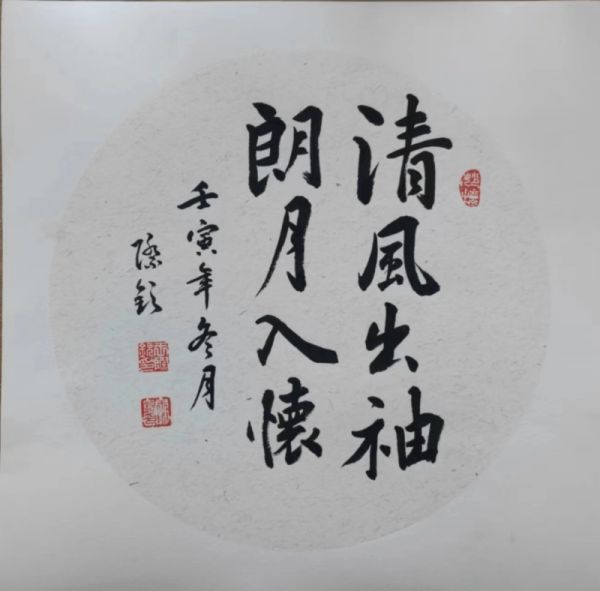 清風出袖
朗月入懷
壬寅年冬月